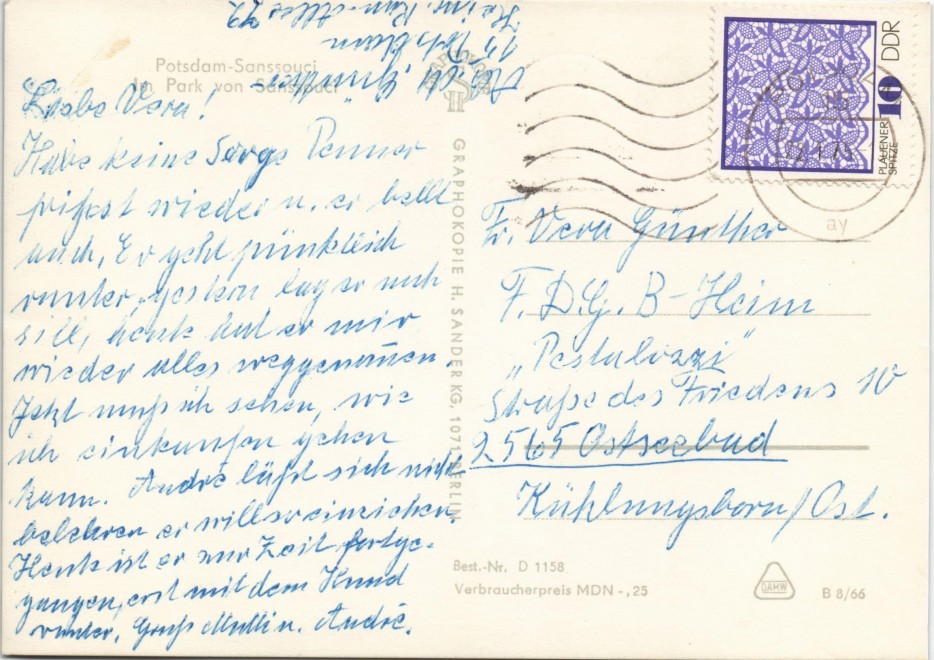 Potsdam-Sanssouci
Im Park von Sanssouci
Liebe Vera!
Habe keine Sorge Penner
frißt wieder u. er bellt
auch, Er geht pünktlich
runter, gestern lag er nur
still, heute hat er mir
wieder alles weggenommen.
Jetzt muß ich sehen, wie
ich einkaufen gehen
kann. André läßt sich nicht
belehren er will so einziehen.
Heute ist er zur Zeit fortge-
gangen, erst mit dem Hund
runter, Gruß Mutti u. André.
Heinr. Allee 72
GRAPHOKOPIE H. SANDER KG, 1071 BERLIN
DDR
10
PLAUENER
SPITZE
ay
Fr. Vera Günther
F.D.G.B-Heim
„Pestalozzi"
Straße des Friedens 10
2565 Ostseebad
Kühlungsborn/Ost.
Best.-Nr. D 1158
Verbraucherpreis MDN -,25
DAMW
B 8/66